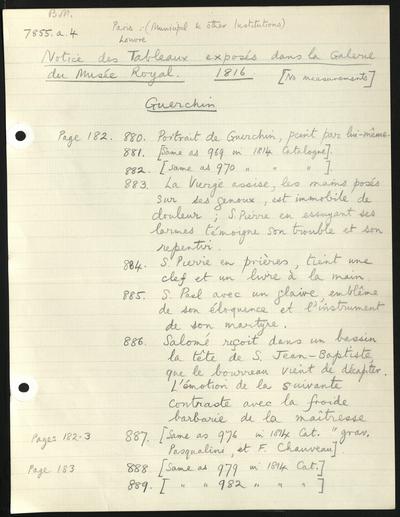 B.M.
7855.a.4
Paris :- (Municipal & other Institutions)
Louvre
Notice des Tableaux exposés dans la Galerie
du Musée Royal. 1816 [No measurements]
Guerchin
Page 182. 880. Portrait de Guerchin, peint par lui-même
881. [Same as 969 in 1814 Catalogue].
882. [Same as 970 " " " ].
883. La Vierge assise, les mains posés
sur ses genoux, est immobile de
douleur ; S. Pierre en essuyant ses
larmes témoigne son trouble et son
repentir.
884. S. Pierre en prières, tient une
clef et un livre à la main.
885. S. Paul avec un glaive, emblême
de son éloquence et l'instrument
de son martyre.
886. Salomé reçoit dans un bassin
la tête de S. Jean-Baptiste
que le bourreau vient de décapter.
L'émotion de la suivante
contraste avec la froide
barbarie de la maîtresse
Pages 182-3 887. [Same as 976 in 1814 Cat. "grav.
Pasqualini, et F. Chauveau].
Page 183 888. [Same as 979 in 1814 Cat.]
889. [ " " 982 " " " ]